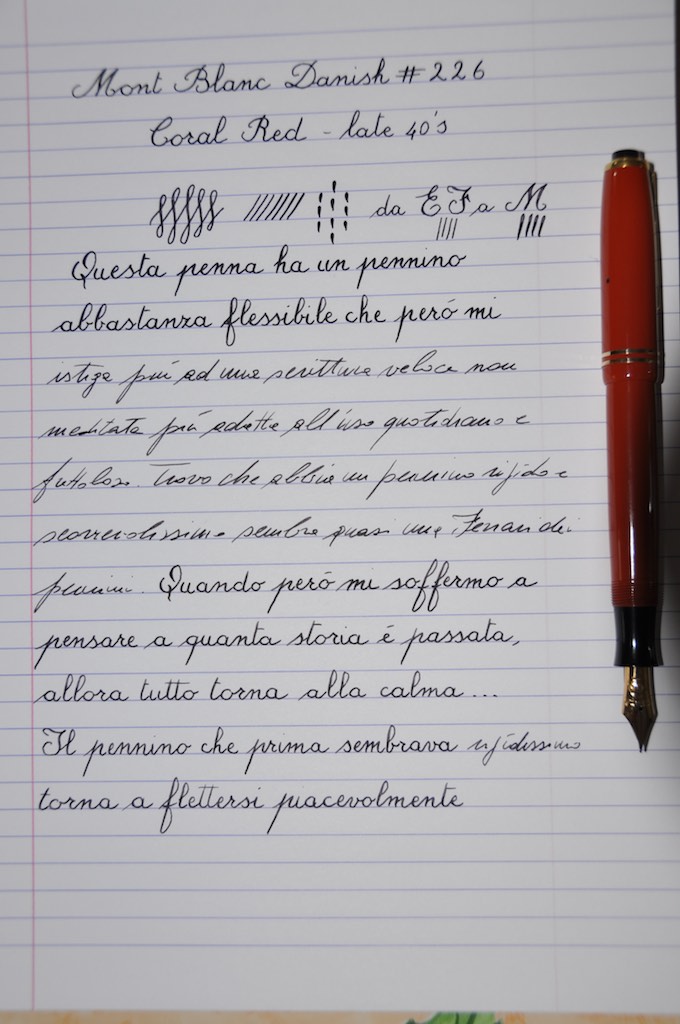 Mont Blanc Danish # 226
Coral Red - late 40's
da EF a M
Questa penna ha un pennino
abbastanza flessibile che peró mi
istiga piú ad una scrittura veloce non
meditata piú adatta all'uso quotidiano e
frettoloso. Trovo che abbia un pennino rigido e
scorrevolissimo sembra quasi una Ferrari dei
pennini. Quando peró mi soffermo a
pensare a quanta storia é passata,
allora tutto torna alla calma ...
Il pennino che prima sembrava rigidissimo
torna a flettersi piacevolmente